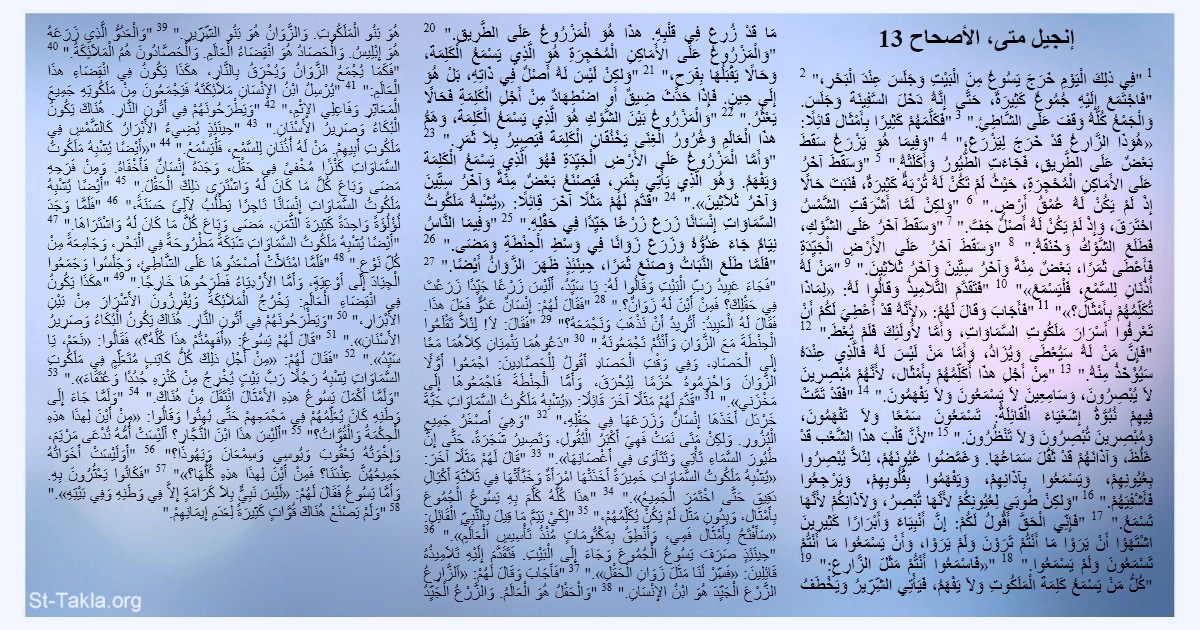 إنجيل متى، الأصحاح 13
1 "فِي ذلِكَ الْيَوْمِ خَرَجَ يَسُوعُ مِنَ الْبَيْتِ وَجَلَسَ عِنْدَ الْبَحْرِ،" 2
"فَاجْتَمَعَ إِلَيْهِ جُمُوعٌ كَثِيرَةٌ، حَتَّى إِنَّهُ دَخَلَ السَّفِينَةَ وَجَلَسَ.
وَالْجَمْعُ كُلُّهُ وَقَفَ عَلَى الشَّاطِئِ." 3 "فَكَلَّمَهُمْ كَثِيرًا بِأَمْثَال قَائِلًا:
«هُوَذَا الزَّارِعُ قَدْ خَرَجَ لِيَزْرَعَ،" 4 "وَفِيمَا هُوَ يَزْرَعُ سَقَطَ
بَعْضٌ عَلَى الطَّرِيقِ، فَجَاءَتِ الطُّيُورُ وَأَكَلَتْهُ." 5 "وَسَقَطَ آخَرُ
عَلَى الأَمَاكِنِ الْمُحْجِرَةِ، حَيْثُ لَمْ تَكُنْ لَهُ تُرْبَةٌ كَثِيرَةٌ، فَنَبَتَ حَالًا
إِذْ لَمْ يَكُنْ لَهُ عُمْقُ أَرْضٍ." 6 "وَلكِنْ لَمَّا أَشْرَقَتِ الشَّمْسُ
احْتَرَقَ، وَإِذْ لَمْ يَكُنْ لَهُ أَصْلٌ جَفَّ." 7 "وَسَقَطَ آخَرُ عَلَى الشَّوْكِ،
فَطَلَعَ الشَّوْكُ وَخَنَقَهُ." 8 "وَسَقَطَ آخَرُ عَلَى الأَرْضِ الْجَيِّدَةِ
فَأَعْطَى ثَمَرًا، بَعْضٌ مِئَةً وَآخَرُ سِتِّينَ وَآخَرُ ثَلاَثِينَ." 9 "مَنْ لَهُ
أُذُنَانِ لِلسَّمْعِ، فَلْيَسْمَعْ»" 10 "فَتَقَدَّمَ التَّلاَمِيذُ وَقَالُوا لَهُ: «لِمَاذَا
تُكَلِّمُهُمْ بِأَمْثَال؟»" 11 "فَأَجَابَ وَقَالَ لَهُمْ: «لأَنَّهُ قَدْ أُعْطِيَ لَكُمْ أَنْ
تَعْرِفُوا أَسْرَارَ مَلَكُوتِ السَّمَاوَاتِ، وَأَمَّا لأُولَئِكَ فَلَمْ يُعْطَ." 12
"فَإِنَّ مَنْ لَهُ سَيُعْطَى وَيُزَادُ، وَأَمَّا مَنْ لَيْسَ لَهُ فَالَّذِي عِنْدَهُ
سَيُؤْخَذُ مِنْهُ." 13 "مِنْ أَجْلِ هذَا أُكَلِّمُهُمْ بِأَمْثَال، لأَنَّهُمْ مُبْصِرِينَ
لاَ يُبْصِرُونَ، وَسَامِعِينَ لاَ يَسْمَعُونَ وَلاَ يَفْهَمُونَ." 14 "فَقَدْ تَمَّتْ
فِيهِمْ نُبُوَّةُ إِشَعْيَاءَ الْقَائِلَةُ: تَسْمَعُونَ سَمْعًا وَلاَ تَفْهَمُونَ،
وَمُبْصِرِينَ تُبْصِرُونَ وَلاَ تَنْظُرُونَ." 15 "لأَنَّ قَلْبَ هذَا الشَّعْبِ قَدْ
غَلُظَ، وَآذَانَهُمْ قَدْ ثَقُلَ سَمَاعُهَا. وَغَمَّضُوا عُيُونَهُمْ، لِئَلاَّ يُبْصِرُوا
بِعُيُونِهِمْ، وَيَسْمَعُوا بِآذَانِهِمْ، وَيَفْهَمُوا بِقُلُوبِهِمْ، وَيَرْجِعُوا
فَأَشْفِيَهُمْ." 16 "وَلكِنْ طُوبَى لِعُيُونِكُمْ لأَنَّهَا تُبْصِرُ، وَلآذَانِكُمْ لأَنَّهَا
تَسْمَعُ." 17 "فَإِنِّي الْحَقَّ أَقُولُ لَكُمْ: إِنَّ أَنْبِيَاءَ وَأَبْرَارًا كَثِيرِينَ
اشْتَهَوْا أَنْ يَرَوْا مَا أَنْتُمْ تَرَوْنَ وَلَمْ يَرَوْا، وَأَنْ يَسْمَعُوا مَا أَنْتُمْ
تَسْمَعُونَ وَلَمْ يَسْمَعُوا." 18 "«فَاسْمَعُوا أَنْتُمْ مَثَلَ الزَّارِعِ:" 19
"كُلُّ مَنْ يَسْمَعُ كَلِمَةَ الْمَلَكُوتِ وَلاَ يَفْهَمُ، فَيَأْتِي الشِّرِّيرُ وَيَخْطَفُ
مَا قَدْ زُرِعَ فِي قَلْبِهِ. هذَا هُوَ الْمَزْرُوعُ عَلَى الطَّرِيقِ." 20
"وَالْمَزْرُوعُ عَلَى الأَمَاكِنِ الْمُحْجِرَةِ هُوَ الَّذِي يَسْمَعُ الْكَلِمَةَ،
وَحَالًا يَقْبَلُهَا بِفَرَحٍ،" 21 "وَلكِنْ لَيْسَ لَهُ أَصْلٌ فِي ذَاتِهِ، بَلْ هُوَ
إِلَى حِينٍ. فَإِذَا حَدَثَ ضِيقٌ أَوِ اضْطِهَادٌ مِنْ أَجْلِ الْكَلِمَةِ فَحَالًا
يَعْثُرُ." 22 "وَالْمَزْرُوعُ بَيْنَ الشَّوْكِ هُوَ الَّذِي يَسْمَعُ الْكَلِمَةَ، وَهَمُّ
هذَا الْعَالَمِ وَغُرُورُ الْغِنَى يَخْنُقَانِ الْكَلِمَةَ فَيَصِيرُ بِلاَ ثَمَرٍ." 23
"وَأَمَّا الْمَزْرُوعُ عَلَى الأَرْضِ الْجَيِّدَةِ فَهُوَ الَّذِي يَسْمَعُ الْكَلِمَةَ
وَيَفْهَمُ. وَهُوَ الَّذِي يَأْتِي بِثَمَرٍ، فَيَصْنَعُ بَعْضٌ مِئَةً وَآخَرُ سِتِّينَ
وَآخَرُ ثَلاَثِينَ»." 24 "قَدَّمَ لَهُمْ مَثَلًا آخَرَ قَائِلًا: «يُشْبِهُ مَلَكُوتُ
السَّمَاوَاتِ إِنْسَانًا زَرَعَ زَرْعًا جَيِّدًا فِي حَقْلِهِ." 25 "وَفِيمَا النَّاسُ
نِيَامٌ جَاءَ عَدُوُّهُ وَزَرَعَ زَوَانًا فِي وَسْطِ الْحِنْطَةِ وَمَضَى." 26
"فَلَمَّا طَلَعَ النَّبَاتُ وَصَنَعَ ثَمَرًا، حِينَئِذٍ ظَهَرَ الزَّوَانُ أَيْضًا." 27
"فَجَاءَ عَبِيدُ رَبِّ الْبَيْتِ وَقَالُوا لَهُ: يَا سَيِّدُ، أَلَيْسَ زَرْعًا جَيِّدًا زَرَعْتَ
فِي حَقْلِكَ؟ فَمِنْ أَيْنَ لَهُ زَوَانٌ؟." 28 "فَقَالَ لَهُمْ: إِنْسَانٌ عَدُوٌّ فَعَلَ هذَا.
فَقَالَ لَهُ الْعَبِيدُ: أَتُرِيدُ أَنْ نَذْهَبَ وَنَجْمَعَهُ؟" 29 "فَقَالَ: لاَ! لِئَلاَّ تَقْلَعُوا
الْحِنْطَةَ مَعَ الزَّوَانِ وَأَنْتُمْ تَجْمَعُونَهُ." 30 "دَعُوهُمَا يَنْمِيَانِ كِلاَهُمَا مَعًا
إِلَى الْحَصَادِ، وَفِي وَقْتِ الْحَصَادِ أَقُولُ لِلْحَصَّادِينَ: اجْمَعُوا أَوَّلًا
الزَّوَانَ وَاحْزِمُوهُ حُزَمًا لِيُحْرَقَ، وَأَمَّا الْحِنْطَةَ فَاجْمَعُوهَا إِلَى
مَخْزَنِي»." 31 "قَدَّمَ لَهُمْ مَثَلًا آخَرَ قَائِلًا: «يُشْبِهُ مَلَكُوتُ السَّمَاوَاتِ حَبَّةَ
خَرْدَل أَخَذَهَا إِنْسَانٌ وَزَرَعَهَا فِي حَقْلِهِ،" 32 "وَهِيَ أَصْغَرُ جَمِيعِ
الْبُزُورِ. وَلكِنْ مَتَى نَمَتْ فَهِيَ أَكْبَرُ الْبُقُولِ، وَتَصِيرُ شَجَرَةً، حَتَّى إِنَّ
طُيُورَ السَّمَاءِ تَأْتِي وَتَتَآوَى فِي أَغْصَانِهَا»." 33 "قَالَ لَهُمْ مَثَلًا آخَرَ:
«يُشْبِهُ مَلَكُوتُ السَّمَاوَاتِ خَمِيرَةً أَخَذَتْهَا امْرَأَةٌ وَخَبَّأَتْهَا فِي ثَلاَثَةِ أَكْيَالِ
دَقِيق حَتَّى اخْتَمَرَ الْجَمِيعُ»." 34 "هذَا كُلُّهُ كَلَّمَ بِهِ يَسُوعُ الْجُمُوعَ
بِأَمْثَال، وَبِدُونِ مَثَل لَمْ يَكُنْ يُكَلِّمُهُمْ،" 35 "لِكَيْ يَتِمَّ مَا قِيلَ بِالنَّبِيِّ الْقَائِلِ:
«سَأَفْتَحُ بِأَمْثَال فَمِي، وَأَنْطِقُ بِمَكْتُومَاتٍ مُنْذُ تَأْسِيسِ الْعَالَمِ»." 36
"حِينَئِذٍ صَرَفَ يَسُوعُ الْجُمُوعَ وَجَاءَ إِلَى الْبَيْتِ. فَتَقَدَّمَ إِلَيْهِ تَلاَمِيذُهُ
قَائِلِينَ: «فَسِّرْ لَنَا مَثَلَ زَوَانِ الْحَقْلِ»." 37 "فَأَجَابَ وَقَالَ لَهُمْ: «اَلزَّارِعُ
الزَّرْعَ الْجَيِّدَ هُوَ ابْنُ الإِنْسَانِ." 38 "وَالْحَقْلُ هُوَ الْعَالَمُ. وَالزَّرْعُ الْجَيِّدُ
هُوَ بَنُو الْمَلَكُوتِ. وَالزَّوَانُ هُوَ بَنُو الشِّرِّيرِ." 39 "وَالْعَدُوُّ الَّذِي زَرَعَهُ
هُوَ إِبْلِيسُ. وَالْحَصَادُ هُوَ انْقِضَاءُ الْعَالَمِ. وَالْحَصَّادُونَ هُمُ الْمَلاَئِكَةُ." 40
"فَكَمَا يُجْمَعُ الزَّوَانُ وَيُحْرَقُ بِالنَّارِ، هكَذَا يَكُونُ فِي انْقِضَاءِ هذَا
الْعَالَمِ:" 41 "يُرْسِلُ ابْنُ الإِنْسَانِ مَلاَئِكَتَهُ فَيَجْمَعُونَ مِنْ مَلَكُوتِهِ جَمِيعَ
الْمَعَاثِرِ وَفَاعِلِي الإِثْمِ،" 42 "وَيَطْرَحُونَهُمْ فِي أَتُونِ النَّارِ. هُنَاكَ يَكُونُ
الْبُكَاءُ وَصَرِيرُ الأَسْنَانِ." 43 "حِينَئِذٍ يُضِيءُ الأَبْرَارُ كَالشَّمْسِ فِي
مَلَكُوتِ أَبِيهِمْ. مَنْ لَهُ أُذُنَانِ لِلسَّمْعِ، فَلْيَسْمَعْ." 44 "«أَيْضًا يُشْبِهُ مَلَكُوتُ
السَّمَاوَاتِ كَنْزًا مُخْفىً فِي حَقْل، وَجَدَهُ إِنْسَانٌ فَأَخْفَاهُ. وَمِنْ فَرَحِهِ
مَضَى وَبَاعَ كُلَّ مَا كَانَ لَهُ وَاشْتَرَى ذلِكَ الْحَقْلَ." 45 "أَيْضًا يُشْبِهُ
مَلَكُوتُ السَّمَاوَاتِ إِنْسَانًا تَاجِرًا يَطْلُبُ لآلِئَ حَسَنَةً،" 46 "فَلَمَّا وَجَدَ
لُؤْلُؤَةً وَاحِدَةً كَثِيرَةَ الثَّمَنِ، مَضَى وَبَاعَ كُلَّ مَا كَانَ لَهُ وَاشْتَرَاهَا." 47
"أَيْضًا يُشْبِهُ مَلَكُوتُ السَّمَاوَاتِ شَبَكَةً مَطْرُوحَةً فِي الْبَحْرِ، وَجَامِعَةً مِنْ
كُلِّ نَوْعٍ." 48 "فَلَمَّا امْتَلأَتْ أَصْعَدُوهَا عَلَى الشَّاطِئِ، وَجَلَسُوا وَجَمَعُوا
الْجِيَادَ إِلَى أَوْعِيَةٍ، وَأَمَّا الأَرْدِيَاءُ فَطَرَحُوهَا خَارِجًا." 49 "هكَذَا يَكُونُ
فِي انْقِضَاءِ الْعَالَمِ: يَخْرُجُ الْمَلاَئِكَةُ وَيُفْرِزُونَ الأَشْرَارَ مِنْ بَيْنِ
الأَبْرَارِ،" 50 "وَيَطْرَحُونَهُمْ فِي أَتُونِ النَّارِ. هُنَاكَ يَكُونُ الْبُكَاءُ وَصَرِيرُ
الأَسْنَانِ»." 51 "قَالَ لَهُمْ يَسُوعُ: «أَفَهِمْتُمْ هذَا كُلَّهُ؟» فَقَالُوا: «نَعَمْ، يَا
سَيِّدُ»." 52 "فَقَالَ لَهُمْ: «مِنْ أَجْلِ ذلِكَ كُلُّ كَاتِبٍ مُتَعَلِّمٍ فِي مَلَكُوتِ
السَّمَاوَاتِ يُشْبِهُ رَجُلًا رَبَّ بَيْتٍ يُخْرِجُ مِنْ كَنْزِهِ جُدُدًا وَعُتَقَاءَ»." 53
"وَلَمَّا أَكْمَلَ يَسُوعُ هذِهِ الأَمْثَالَ انْتَقَلَ مِنْ هُنَاكَ." 54 "وَلَمَّا جَاءَ إِلَى
وَطَنِهِ كَانَ يُعَلِّمُهُمْ فِي مَجْمَعِهِمْ حَتَّى بُهِتُوا وَقَالُوا: «مِنْ أَيْنَ لِهذَا هذِهِ
الْحِكْمَةُ وَالْقُوَّاتُ؟" 55 "أَلَيْسَ هذَا ابْنَ النَّجَّارِ؟ أَلَيْسَتْ أُمُّهُ تُدْعَى مَرْيَمَ،
وَإِخْوَتُهُ يَعْقُوبَ وَيُوسِي وَسِمْعَانَ وَيَهُوذَا؟" 56 "أَوَلَيْسَتْ أَخَوَاتُهُ
جَمِيعُهُنَّ عِنْدَنَا؟ فَمِنْ أَيْنَ لِهذَا هذِهِ كُلُّهَا؟»" 57 "فَكَانُوا يَعْثُرُونَ بِهِ.
وَأَمَّا يَسُوعُ فَقَالَ لَهُمْ: «لَيْسَ نَبِيٌّ بِلاَ كَرَامَةٍ إِلاَّ فِي وَطَنِهِ وَفِي بَيْتِهِ»."
58 "وَلَمْ يَصْنَعْ هُنَاكَ قُوَّاتٍ كَثِيرَةً لِعَدَمِ إِيمَانِهِمْ."
St-Takla.org